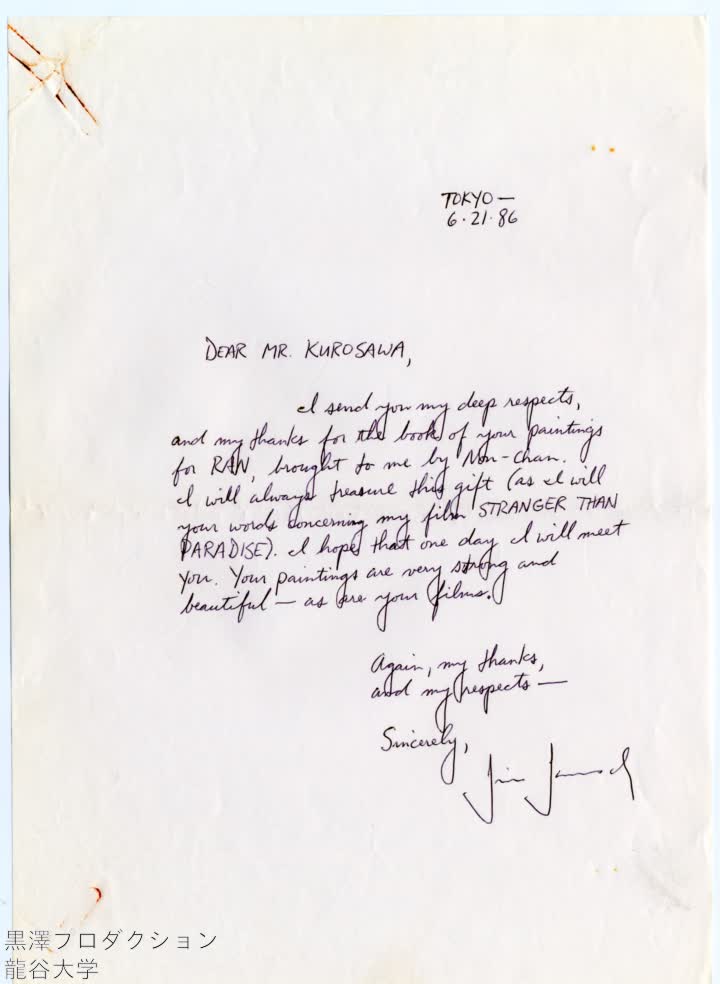 TOKYO —
6·21·86
DEAR MR. KUROSAWA,
I send you my deep respects,
and my thanks for the book of your paintings
for RAN, brought to me by Non-chan.
I will always treasure this gift (as I will
your words concerning my film STRANGER THAN
PARADISE). I hope that one day I will meet
you. Your paintings are very strong and
beautiful — as are your films.
Again, my thanks,
and my respects —
Sincerely,
Jim Jarmusch
黒澤プロダクション
龍谷大学